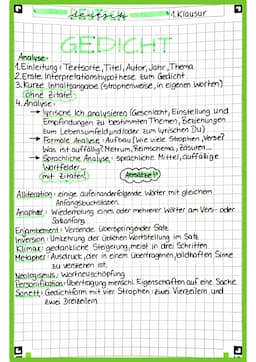 DEUTSCH
1. Klausur
GEDICHT
Analyse:
1. Einleitung: Textsorte, Titel, Autor, Jahr, Thema
2. Erste Interpretationshypothese zum Gedicht
3. Kurze Inhaltsangabe (strophenweise, in eigenen Worten)
Ohne Zitate!
4. Analyse:
→ lyrische Ich analysieren (Geschlecht, Einstellung und
Empfindungen zu bestimmten Themen, Beziehungen
zum Lebensumfeld und/oder zum lyrischen Du)
→ Formale Analyse: Aufbau (Wie viele Strophen, Verse?
Was ist auffällig? Metrum, Reimschema, Zäsuren...
→ Sprachliche Analyse: sprachliche Mittel, auffällige
Wortfelder...
mit Zitaten!
Absätze!!
Alliteration: einige aufeinanderfolgende Wörter mit gleichem
Anfangsbuchstaben.
Anapher: Wiederholung eines oder mehrerer Wörter am Vers- oder
Satzanfang
Enjambement: Versende überspringender Satz
Inversion: Umkehrung der üblichen Wortstellung im Satz
Klimax: gedankliche Steigerung, meist in drei Schritten
Metapher: Ausdruck, der in einem übertragenen, bildhaften Sinne
zu verstehen ist.
Neologismus: Wortneuschöpfung
Personifikation: Übertragung menschl. Eigenschaften auf eine Sache
Sonett: Gedichtform mit vier Strophen: zwei Vierzeilern und
zwei Dreizeilern